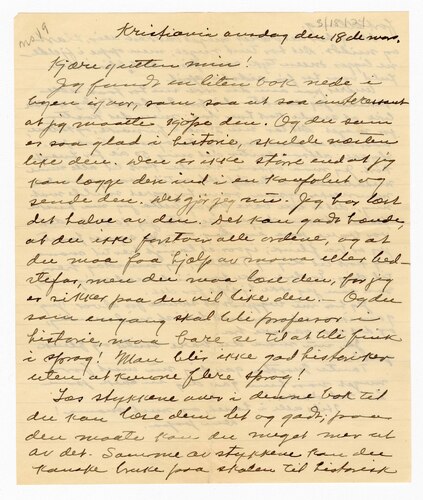 Kristiania onsdag den 18de nov.
Kjære gutten min!
Jeg fandt en liten bok nede i
byen igaar, som saa ut saa interessant
at jeg maatte kjøpe den. Og du som
er saa glad i historie, skulde næsten
like den. Den er ikke større end at jeg
kan lægge den ind i en konfolut og
sende den. Det gjør jeg nu. Jeg har læst
det halve av den. Det kan godt hænde,
at du ikke forstaar alle ordene, og at
du maa faa hjælp av mama eller bed-
stefar, men du maa læse den, for jeg
er sikker paa du vil like den. – Og du
som engang skal bli professor i
historie, maa bare se til at bli flink
i sprog! Man blir ikke god historiker
uten at kunne flere sprog!
Læs stykkene over i denne bok til
du kan læse dem let og godt, paa
den maate kan du meget mer ut
av det. Somme av stykkene kan du
kanske bruke paa skolen til historisk